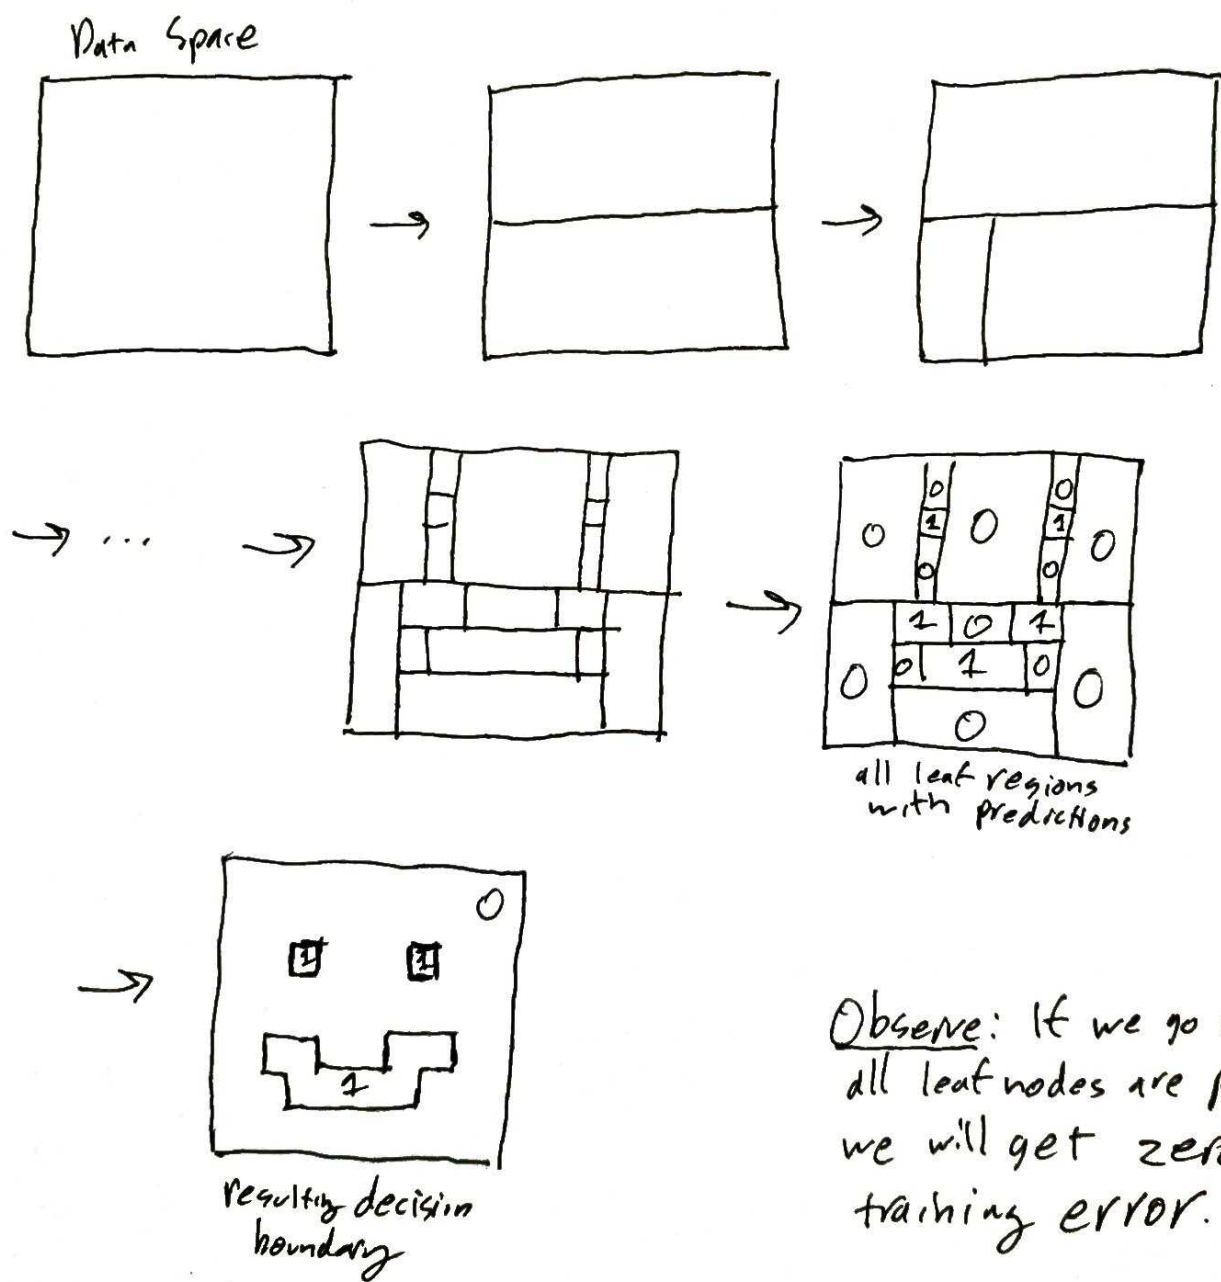 Data Space
...
0 0
0 1 0 1 0
0 0
1 0 1
0 0 1 0 0
0
all leaf regions
with predictions
0
1 1
1
resulting decision
boundary
Observe: If we go
all leaf nodes are
we will get
training error.